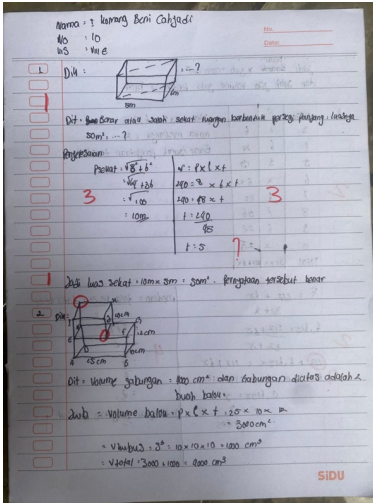 Nama : I Komang Beni Cahyadi
No : 10
No.
Date:
1. Dik :
8m
6m
Dit : Benar atau salah sekat ruangan berbentuk persegi panjang luasnya
50m², ...?
Penyelesaian
Psekat = √8² + 6²
= √64 + 36
= √100
= 10m
3
V = p x l x t
240 = 8 x 6 x t
240 = 48 x t
t = 240
48
t = 5
3
?
1
1
Jadi luas sekat = 10m x 5m = 50m². Pernyataan tersebut benar
2. Dik :
10cm
12cm
10cm
25cm
A
B
Dit = Volume gabungan = 4000 cm³ dan Gabungan diatas adalah 2
buah balok.
Jwb = Volume balok = p x l x t = 25 x 10 x 12
= 3000cm³
= Vkubus = s³ = 10 x 10 x 10 = 1000 cm³
= Vtotal = 3000 + 1000 = 4000 cm³
SiDU